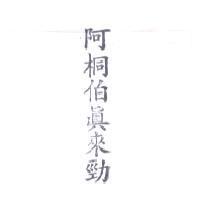 阿桐伯眞來勁